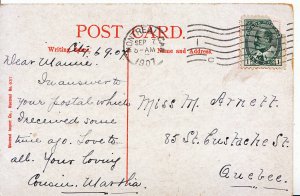 POST CARD.
Writing Space Name and Address
MONTREAL
SEP 7
5-AM
1907
C
Sept 6. 07
Dear Mamie.
In answer to
your postal which
I received some
time ago. Love to
all. Your loving
Cousin, Martha
Miss M. Arnett.
85 St. Eustache St.
Quebec.